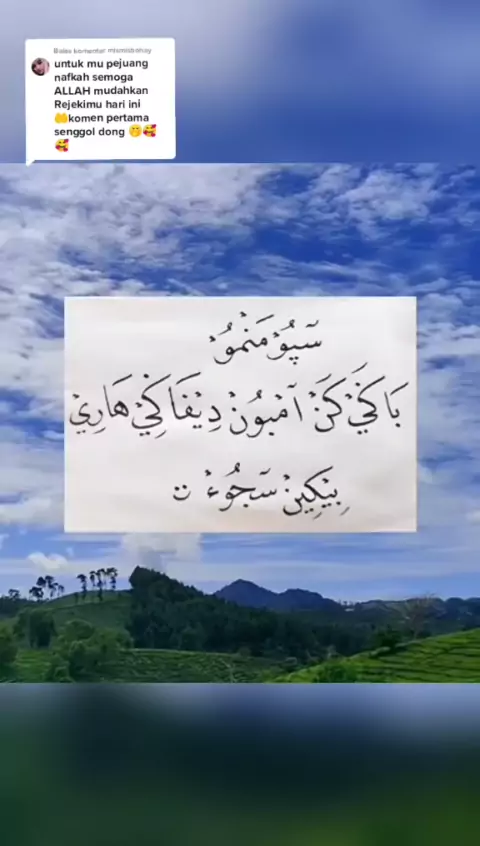 Balas komentar
untuk mu pejuang
nafkah semoga
ALLAH mudahkan
Rejekimu hari ini
🤲komen pertama
senggol dong 🤭🥰
🥰
سۤپُوْ مَنْمُوْ
بَاكَيْ كَنْ اۤمْبُوْنْ دِيْفَاكِيْ هَارِيْ
بِيْكِيْنْ سۤجُوْءْ ت